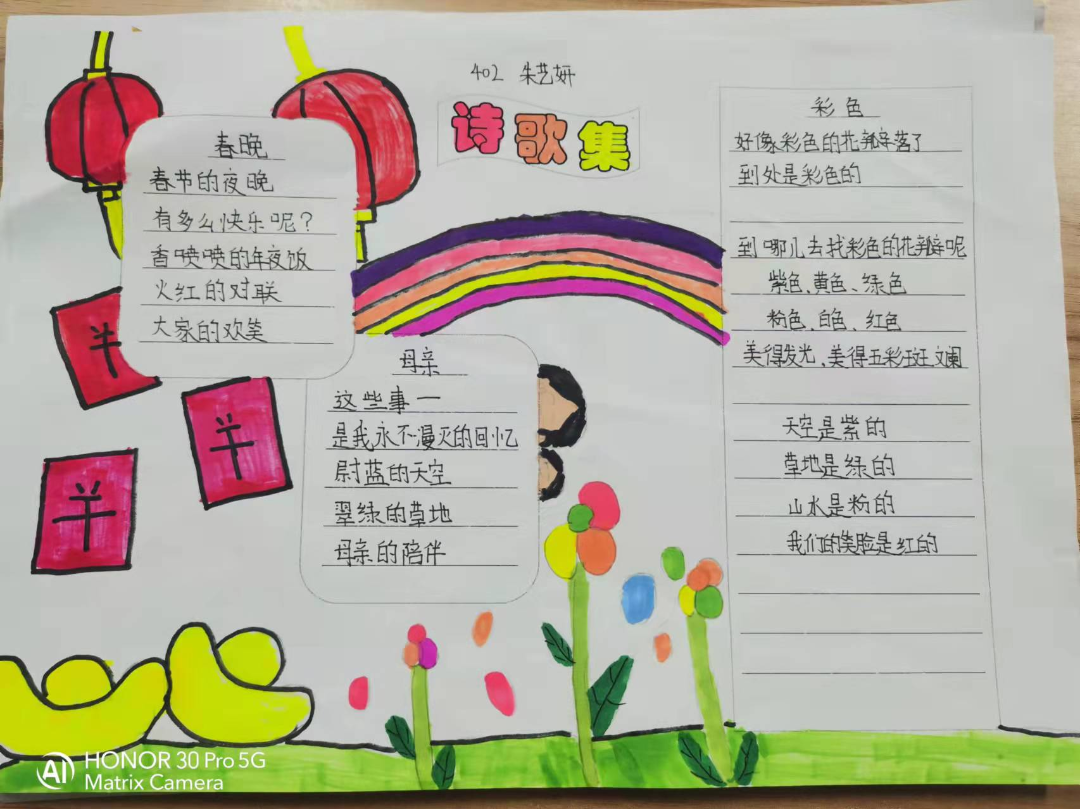 402 朱艺妍
诗歌集
春晚
春节的夜晚
有多么快乐呢?
香喷喷的年夜饭
火红的对联
大家的欢笑
羊
羊
羊
母亲
这些事一
是我永不漫灭的回忆
尉蓝的天空
翠绿的草地
母亲的陪伴
彩色
好像彩色的花瓣落了
到处是彩色的
到哪儿去找彩色的花瓣呢
紫色、黄色、绿色
粉色、白色、红色
美得发光、美得五彩斑斓
天空是紫的
草地是绿的
山水是粉的
我们的笑脸是红的
AI HONOR 30 Pro 5G
Matrix Camera